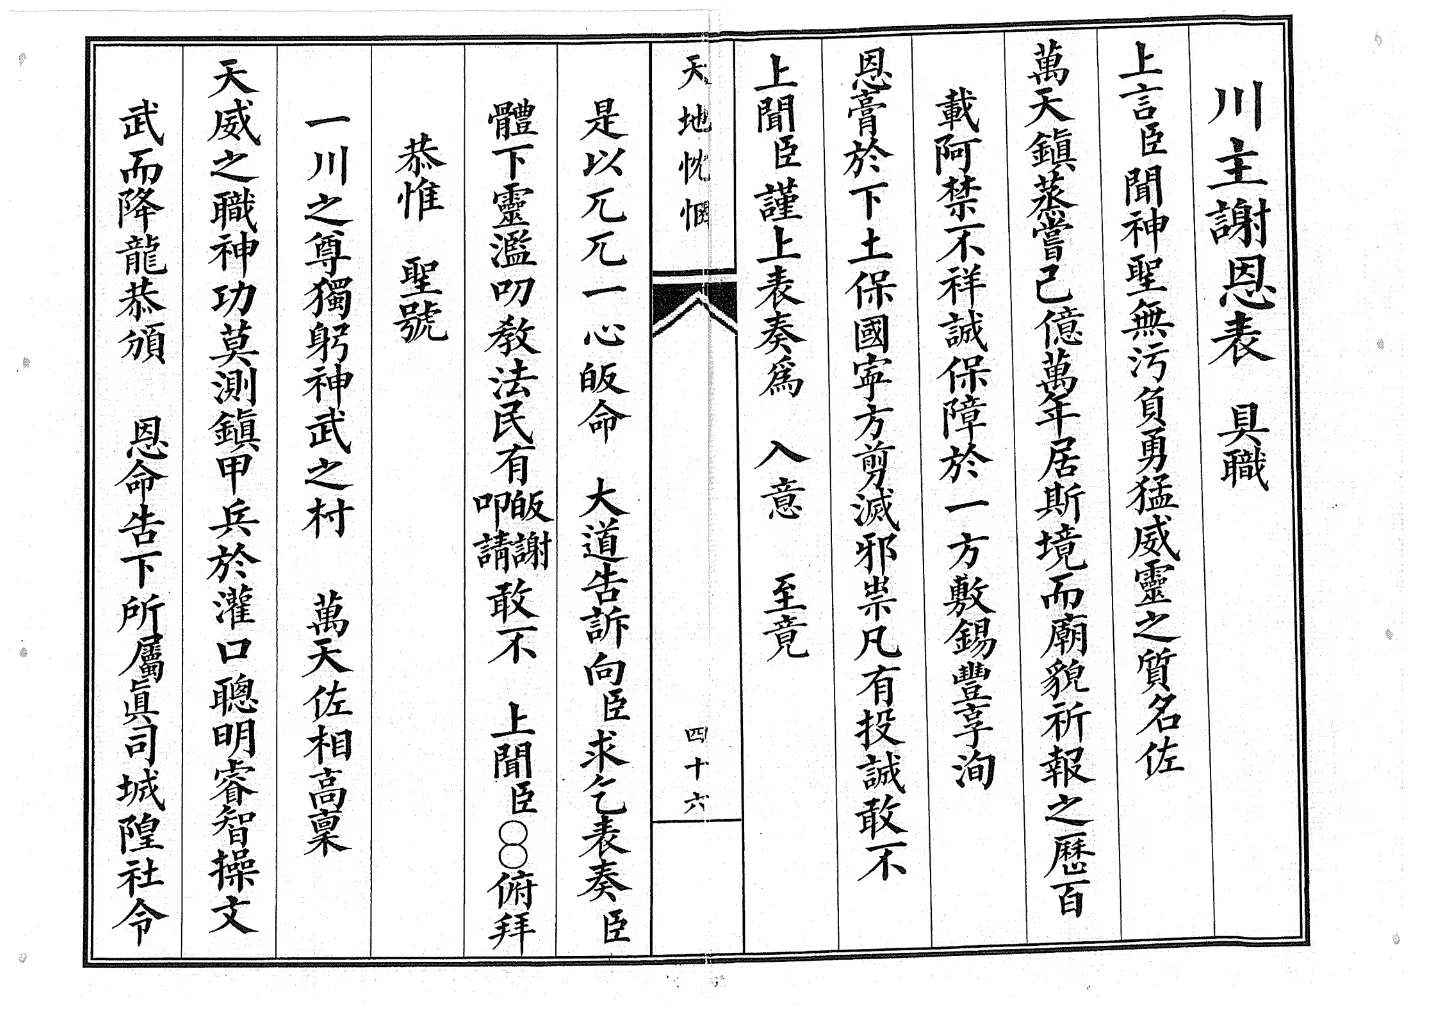 川主謝恩表　具職
上言臣聞神聖無污負勇猛威靈之質名佐
萬天鎮蒸嘗己億萬年居斯境而廟貌祈報之歷百
載阿禁不祥誠保障於一方敷錫豐享洵
恩膏於下土保國寧方剪滅邪祟凡有投誠敢不
上聞臣謹上表奏爲　入意　至竟
天地忱悃
四十六
是以兀兀一心皈命　大道告訴向臣求乞表奏臣
體下靈濫叨教法民有皈謝叩請敢不　上聞臣〇〇俯拜
恭惟　聖號
一川之尊獨躬神武之村　萬天佐相高稟
天威之職神功莫測鎮甲兵於灌口聰明睿智操文
武而降龍恭頒　恩命告下所屬眞司城隍社令